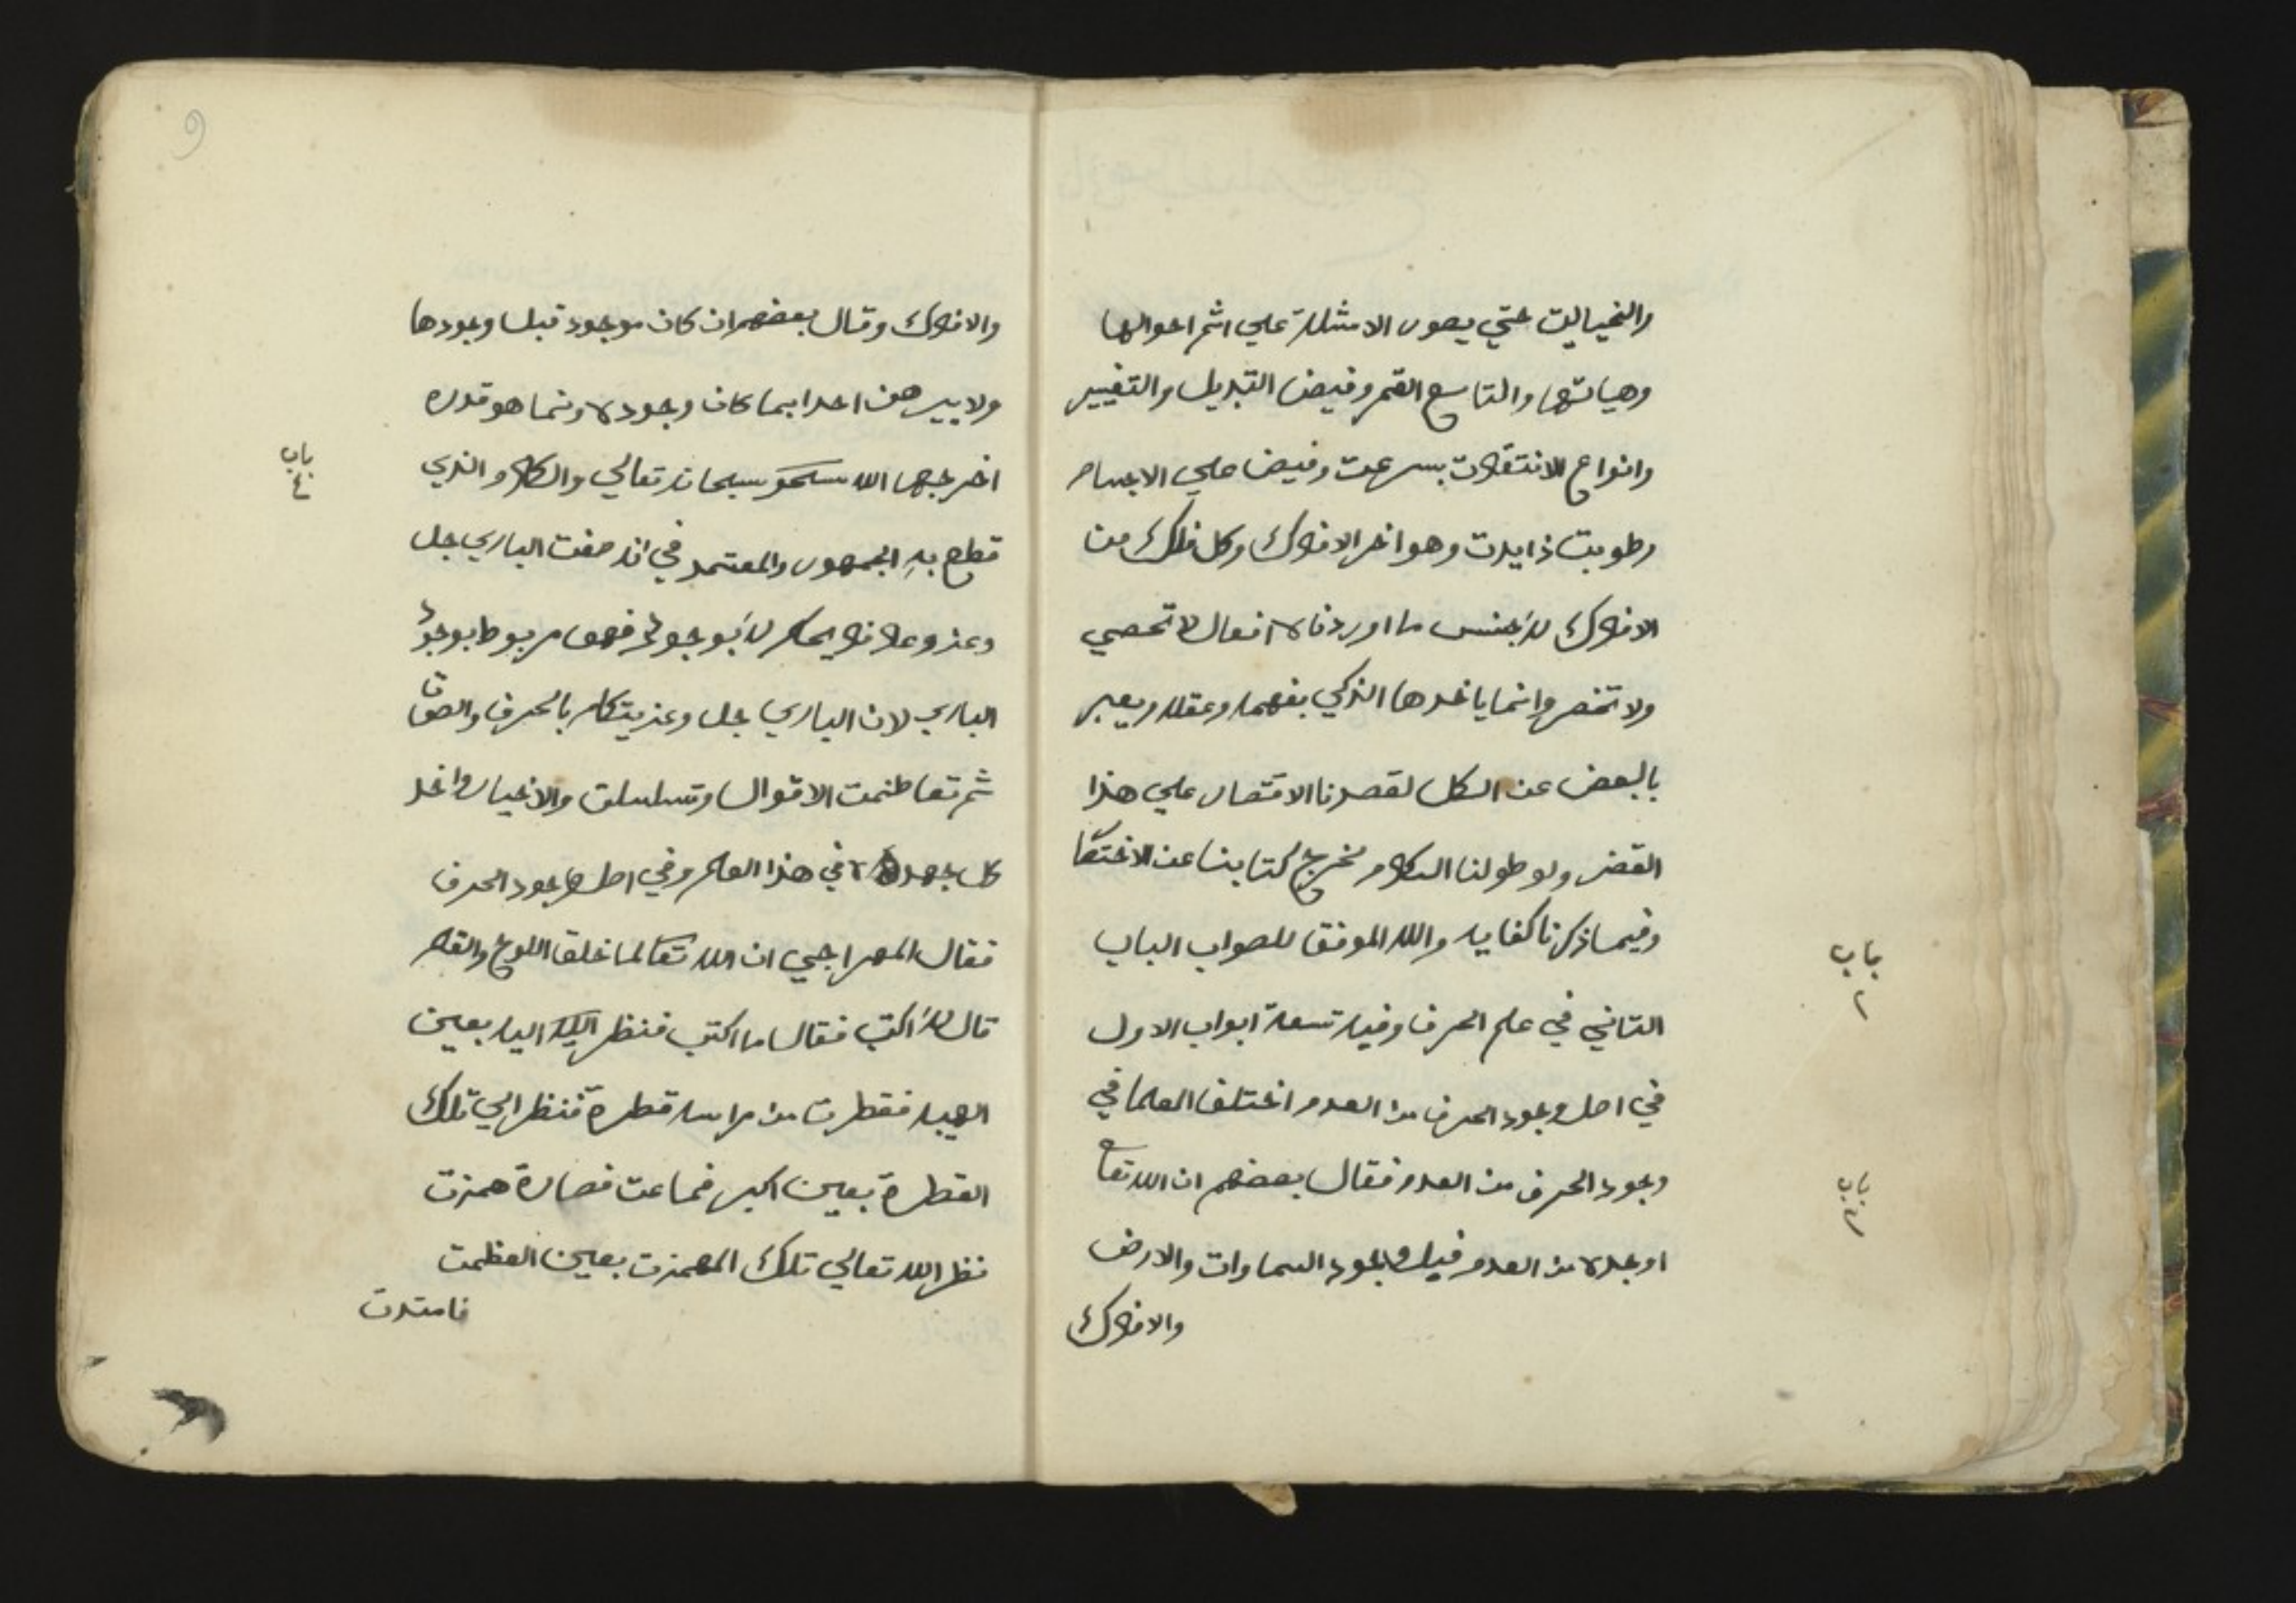 والتخياليت حتي يصور الامثلة علي اثم احوالها
وهياتها والتاسع القمر وفيض التبديل والتغيير
وانواع الانتقالات بسرعت وفيض علي الاجسام
رطوبت زايدت وهو اخر الافلاك وكل فلك من
الافلاك له بجنس ما اوردناه افعال لا تحصي
ولا تحصر وانما ياخدها الذكي بفهمه وعقله ويعبر
بالبعض عن الكل لقصدنا الاقتصار علي هذا
القصر ولو طولنا الكلام لخرج كتابنا عن الاختصا
وفيما ذكرنا كفايه والله الموفق للصواب الباب
التاني في علم الحرف وفيه تسعة ابواب الاول
في اصل وجود الحرف من العدم اختلف العلما في
وجود الحرف من العدم فقال بعضهم ان الله تعا
اوجده من العدم قبل وجود السماوات والارض
والافلاك
باب
٢
باب
والافلاك وقال بعضهم ان كان موجود قبل وجودها
ولا يبرهن احدا بما كان وجوده وانما هو قدره
اخرجها الله سبحانه تعالي والكلام الذي
قطع به الجمهور والمعتمد في انه صفت الباري جل
وعز وعلا فلا يحكم له بوجود فهو مربوط بوجود
الباري لان الباري جل وعز يتكلم بالحرف والصوت
ثم تعاظمت الاقوال وتسلسلت والاخيار واخد
كل جهده في هذا العلم وفي اصل وجود الحرف
فقال المهراجي ان الله تعا لما خلق اللوح والقلم
قال له اكتب فقال ما اكتب فنظر اليه بعين
الهيبه فقطرت من راسه قطرة فنظر الي تلك
القطرة بعين اكبر فماعت فصارة همزت
نظر الله تعالي تلك الهمزت بعين العظمت
فامتدت
باب
٤
9